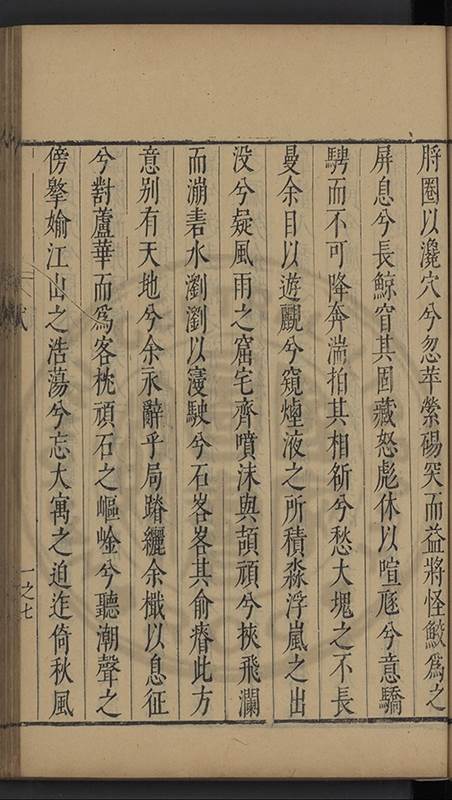 將圈以瀺穴兮忽萃縈碭突而益將怪鮫爲之
屏息兮長鯨窅其固藏怒彪休以喧豗兮意驕
騁而不可降奔湍拍其相斫兮愁大塊之不長
曼余目以遊覼兮窺煙液之所積淼浮嵐之出
没兮疑風雨之窟宅齊噴沫與頡頏兮挾飛瀾
而漰砉水瀏瀏以寖駛兮石峉峉其俞瘠此方
意别有天地兮余永辭乎局蹐纚余檥以息征
兮對蘆華而爲客枕頑石之嶇崯兮聽潮聲之
傍擊媮江山之浩蕩兮忘大寓之迫迮倚秋風
一之七